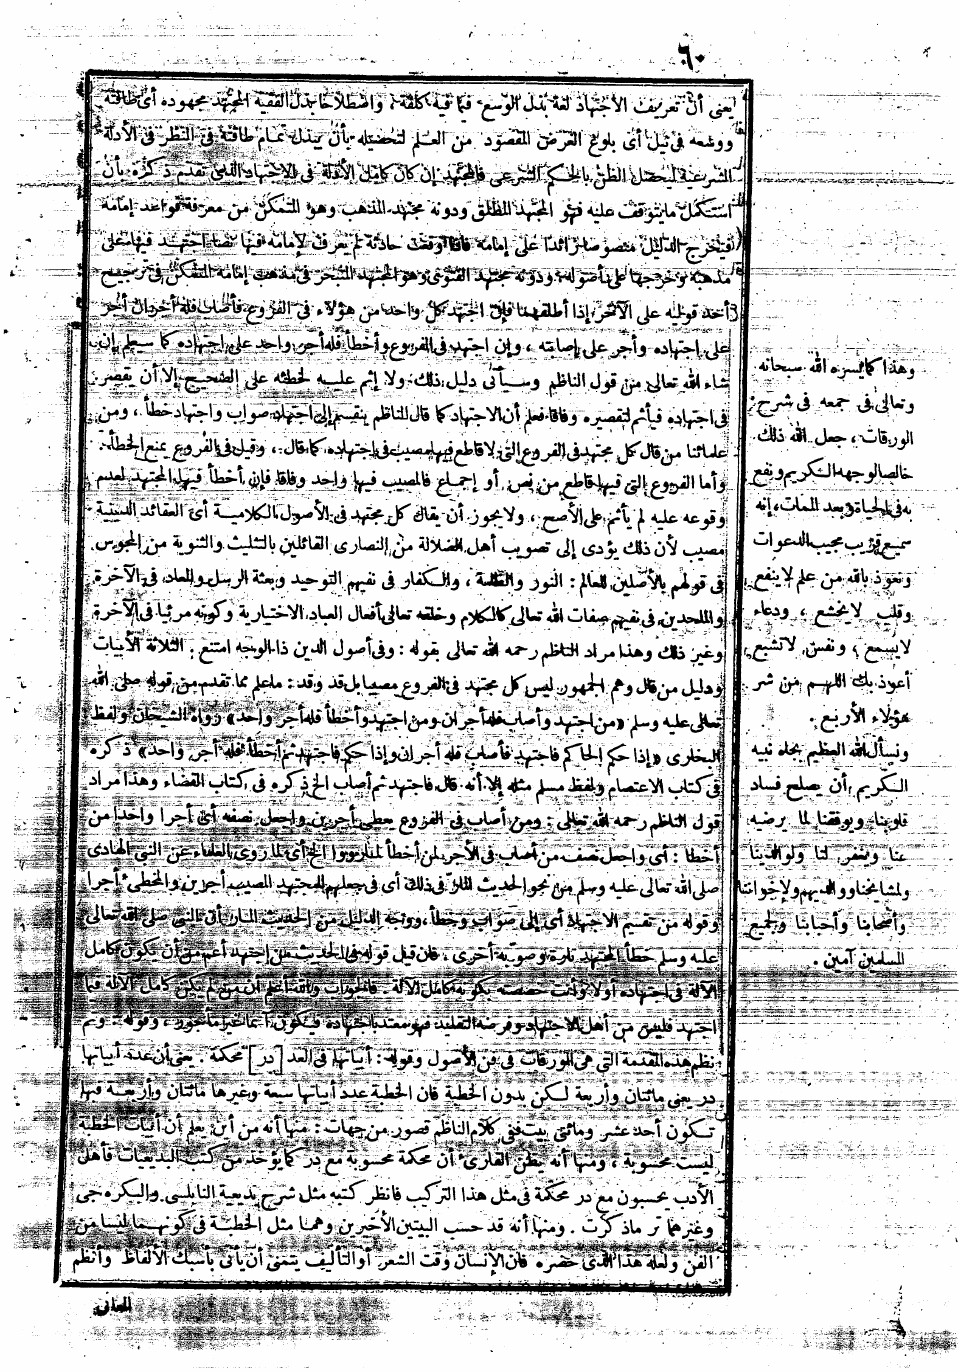 ٦٠
يعنى أن تعريف الاجتهاد لغة بذل الوسع فيما فيه كلفة، واصطلاحا بذل الفقيه المجتهد مجهوده أى طاقته
ووسعه فى نيل أى بلوغ الغرض المقصود من العلم لتحصيله بأن يبذل تمام طاقته فى النظر فى الأدلة
الشرعية ليحصل الظن بالحكم الشرعى فالمجتهد إن كان كامل الآلة فى الاجتهاد الذى تقدم ذكره بأن
استكمل ما يتوقف عليه فهو المجتهد المطلق ودونه مجتهد المذهب وهو المتمكن من معرفة قواعد إمامه
فيخرج الدليل منصوصا زائدا على إمامه فاذا وقعت حادثة لم يعرف لإمامه فيها نصا اجتهد فيها على
مذهبه وخرجها على أصوله ودونه مجتهد الفتوى وهو المجتهد المتبحر فى مذهب إمامه المتمكن فى ترجيح
أحد قوليه على الآخر إذا أطلقهما فإن اجتهد كل واحد من هؤلاء فى الفروع فأصاب فله أجران أجر
على اجتهاده وأجر على إصابته ، وإن اجتهد فى الفروع وأخطأ فله أجر واحد على اجتهاده كما سيعلم إن
شاء الله تعالى من قول الناظم وسيأتى دليل ذلك ولا إثم عليه لخطئه على الصحيح إلا أن يقصر
فى اجتهاده فيأثم لتقصيره وفاقا فعلم أن الاجتهاد كما قال الناظم ينقسم إلى اجتهاد صواب واجتهاد خطأ ، ومن
علمائنا من قال كل مجتهد فى الفروع التى لا قاطع فيها مصيب فى اجتهاده، كما قال: وقيل فى الفروع يمنع الخطأ.
وأما الفروع التى فيها قاطع من نص أو إجماع فالمصيب فيها واحد وفاقا فإن أخطأ فيها المجتهد لعدم
وقوعه عليه لم يأثم على الأصح ، ولا يجوز أن يقال كل مجتهد فى الأصول الكلامية أى العقائد الدينية
مصيب لأن ذلك يؤدى إلى تصويب أهل الضلالة من النصارى القائلين بالتثليث والثنوية من المجوس
فى قولهم بالأصلين للعالم : النور والظلمة ، والكفار فى نفيهم التوحيد وبعثة الرسل والمعاد فى الآخرة
والملحدين فى نفيهم صفات الله تعالى كالكلام وخلقه تعالى أفعال العباد الاختيارية وكونه مرئيا فى الآخرة
وغير ذلك وهذا مراد الناظم رحمه الله تعالى بقوله : وفى أصول الدين ذا الوجه امتنع . الثلاثة الأبيات
ودليل من قال وهم الجمهور ليس كل مجتهد فى الفروع مصيبا بل قد وقد : ما علم مما تقدم من قوله صلى الله
تعالى عليه وسلم «من اجتهد وأصاب فله أجران ومن اجتهد وأخطأ فله أجر واحد» رواه الشيخان ولفظ
البخارى «إذا حكم الحاكم فاجتهد فأصاب فله أجران وإذا حكم فاجتهد ثم أخطأ فله أجر واحد» ذكره
فى كتاب الاعتصام ولفظ مسلم مثله إلا أنه قال فاجتهد ثم أصاب الخ ذكره فى كتاب القضاء وهذا مراد
قول الناظم رحمه الله تعالى : ومن أصاب فى الفروع يعطى أجرين واجعل نصفه أى أجرا واحدا من
أخطا : أى واجعل نصف من أصاب فى الأجر لمن أخطأ لما رووا الخ أى لما روى العلماء عن النبى الهادى
صلى الله تعالى عليه وسلم من نحو الحديث المار فى ذلك أى فى جعلهم للمجتهد المصيب أجرين والمخطئ أجرا
وقوله من تقسيم الاجتهاد أى إلى صواب وخطأ، ووجه الدليل من الحديث المار أن النبى صلى الله تعالى
عليه وسلم خطأ المجتهد تارة وصوبه أخرى ، فان قيل قوله فى الحديث من اجتهد أعم من أن يكون كامل
الآلة فى اجتهاده أو لا وأنت خصصته بكونه كامل الآلة . فالجواب والله أعلم أن من لم يكن كامل الآلة فيما
اجتهد فليس من أهل الاجتهاد وفرضه التقليد فهو معتد باجتهاده فيكون آثما غير مأجور ، وقوله : وتم
نظم هذه المقدمة التى هى الورقات فى فن الأصول وقوله : أبياتها فى العد [در] محكمة . يعنى أن عدة أبياتها
در يعنى مائتان وأربعة لكن بدون الخطبة فان الخطبة عدد أبياتها سبعة وغيرها مائتان وأربعة فهما
تكون أحد عشر ومائتى بيت ففى كلام الناظم قصور من جهات : منها أنه من أين يعلم أن أبيات الخطبة
ليست محسوبة ، ومنها أنه يظن القارئ أن محكمة محسوبة مع در كما يؤخذ من كتب البديعيات فأهل
الأدب يحسبون مع در محكمة فى مثل هذا التركيب فانظر كتبه مثل شرح بديعية النابلسى والبكره جى
وغيرهما تر ما ذكرت . ومنها أنه قد حسب البيتين الأخيرين وهما مثل الخطبة فى كونهما ليسا من
الفن ولعله هذا الذى حضره فان الإنسان وقت الشعر أو التأليف يتمنى أن يأتى بأسبك الألفاظ وأنظم
المعانى
وهذا كما يسره الله سبحانه
وتعالى فى جمعه فى شرح
الورقات ، جعل الله ذلك
خالصا لوجهه الكريم ونفع
به فى الحياة وبعد الممات، إنه
سميع قريب مجيب الدعوات
ونعوذ بالله من علم لا ينفع
وقلب لا يخشع ، ودعاء
لا يسمع ، ونفس لا تشبع
أعوذ بك اللهم من شر
هؤلاء الأربع .
ونسأل الله العظيم بجاه نبيه
الكريم أن يصلح فساد
قلوبنا ويوفقنا لما يرضيه
عنا ويغفر لنا ولوالدينا
ولمشايخنا ووالديهم ولإخواننا
وأصحابنا وأحبابنا ولجميع
المسلمين آمين .